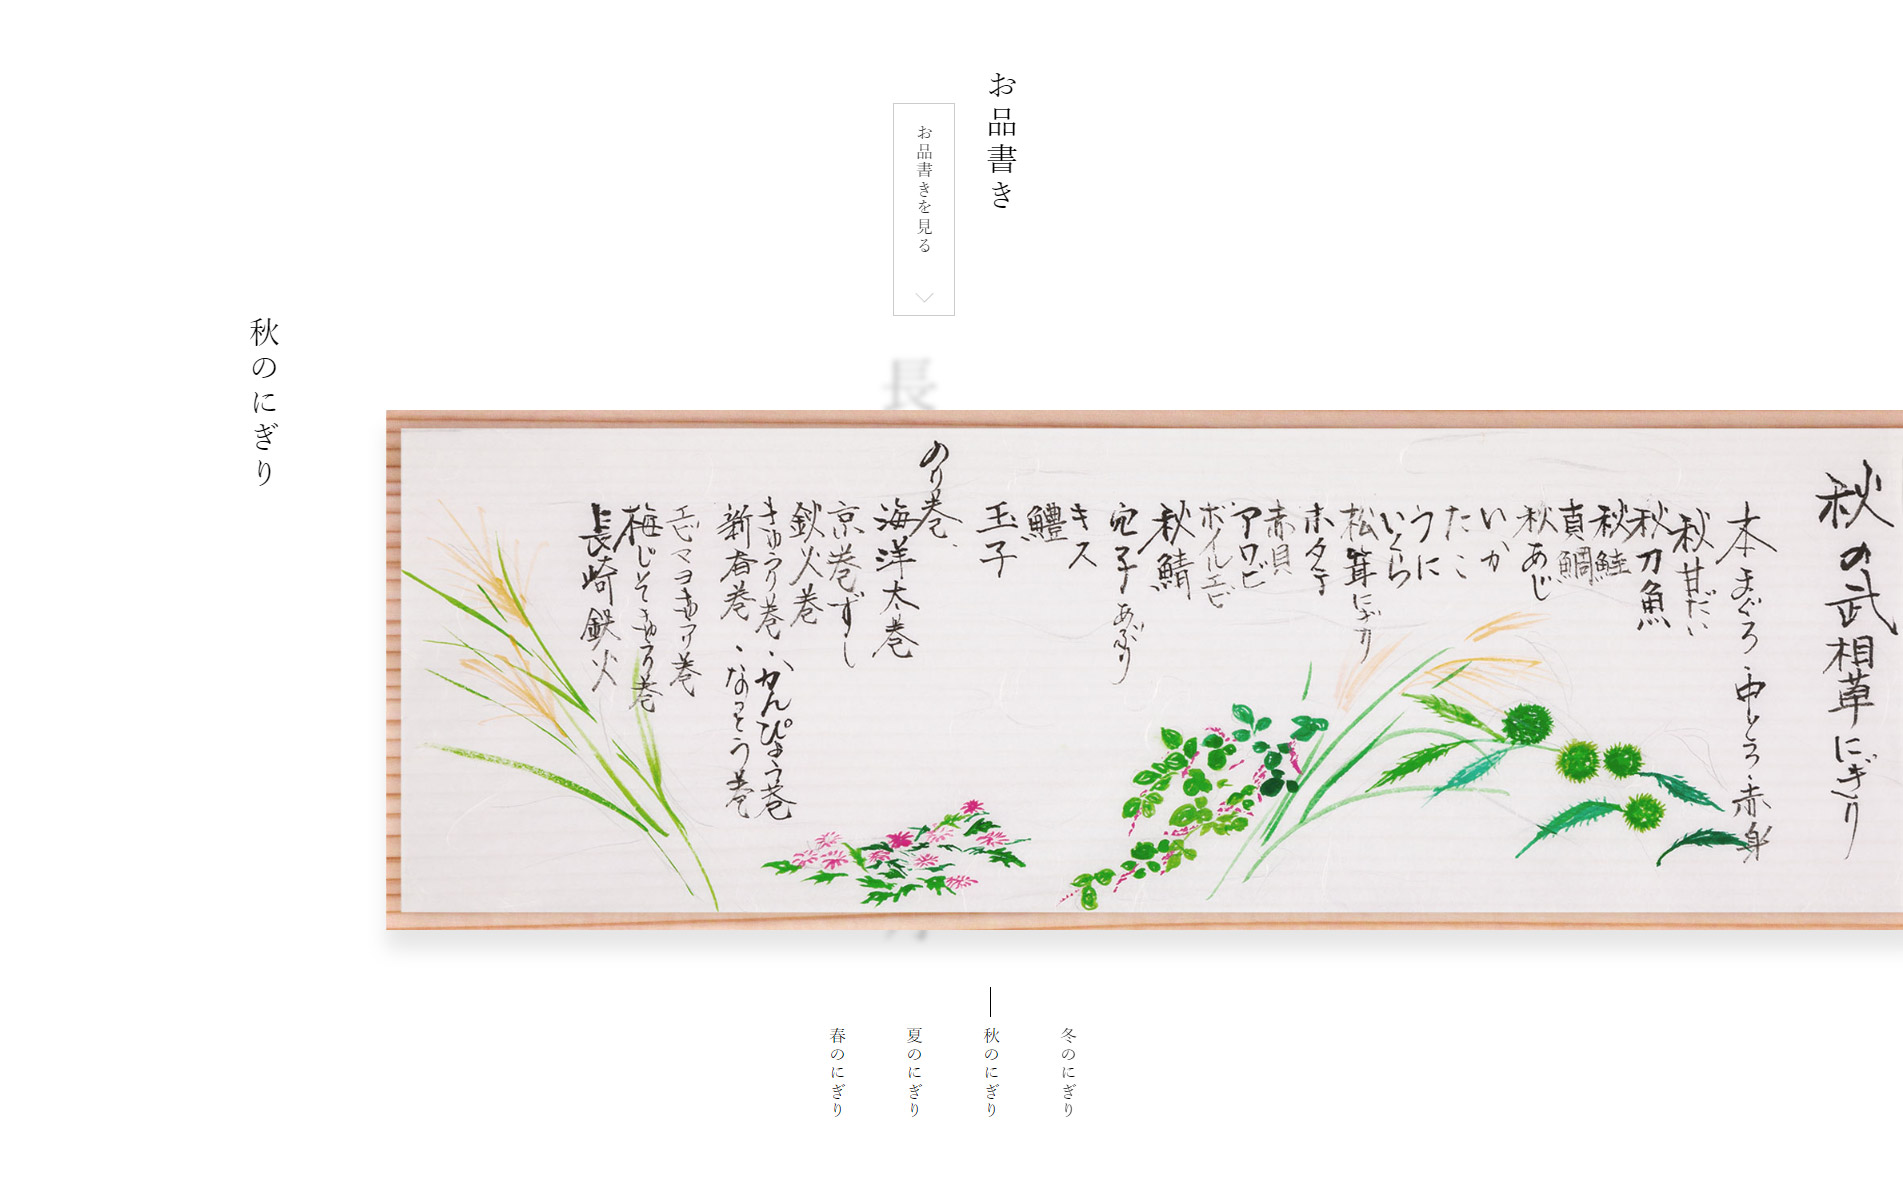 お品書き
お品書きを見る
秋のにぎり
長
秋の武相草にぎり
本まぐろ・中とろ・赤身
秋甘だい
秋刀魚
秋鮭
真鯛
秋あじ
いか
たこ
うに
いくら
松茸にぎり
ホタテ
赤貝
アワビ
ボイルエビ
秋鯖
穴子あぶり
キス
鱧
玉子
のり巻
海洋太巻
京巻ずし
鉄火巻
きゅうり巻・かんぴょう巻
新香巻・なっとう巻
エビマヨきゅうり巻
梅じそきゅうり巻
長崎鉄火
冬のにぎり
秋のにぎり
夏のにぎり
春のにぎり